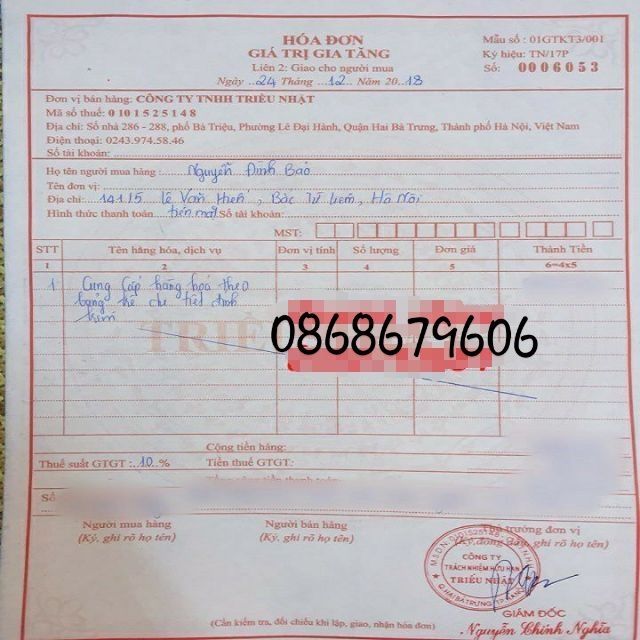 HÓA ĐƠN
GIÁ TRỊ GIA TĂNG
Liên 2: Giao cho người mua
Ngày 24 Tháng 12 Năm 2018
Mẫu số : 01GTKT3/001
Ký hiệu: TN/17P
Số: 0006053
Đơn vị bán hàng: CÔNG TY TNHH TRIỀU NHẬT
Mã số thuế: 0101525148
Địa chỉ: Số nhà 286 - 288, phố Bà Triệu, Phường Lê Đại Hành, Quận Hai Bà Trưng, Thành phố Hà Nội, Việt Nam
Điện thoại: 0243.974.58.46
Số tài khoản:
Họ tên người mua hàng : Nguyễn Đình Bảo
Tên đơn vị:
Địa chỉ: 14115 Lê Văn Hiến, Bắc Từ Liêm, Hà Nội
Hình thức thanh toán tiền mặt Số tài khoản:
MST:
STT Tên hàng hóa, dịch vụ Đơn vị tính Số lượng Đơn giá Thành Tiền
1 2 3 4 5 6=4x5
1 Cung cấp hàng hoá theo
bảng kê chi tiết đính
kèm
TRIỀU
0868679606
Cộng tiền hàng:
Thuế suất GTGT : 10 % Tiền thuế GTGT:
Số
Người mua hàng Người bán hàng Thủ trưởng đơn vị
(Ký, ghi rõ họ tên) (Ký, ghi rõ họ tên)
CÔNG TY
TRÁCH NHIỆM HỮU HẠN
TRIỀU NHẬT
GIÁM ĐỐC
Nguyễn Chính Nghĩa
(Cần kiểm tra, đối chiếu khi lập, giao, nhận hóa đơn)